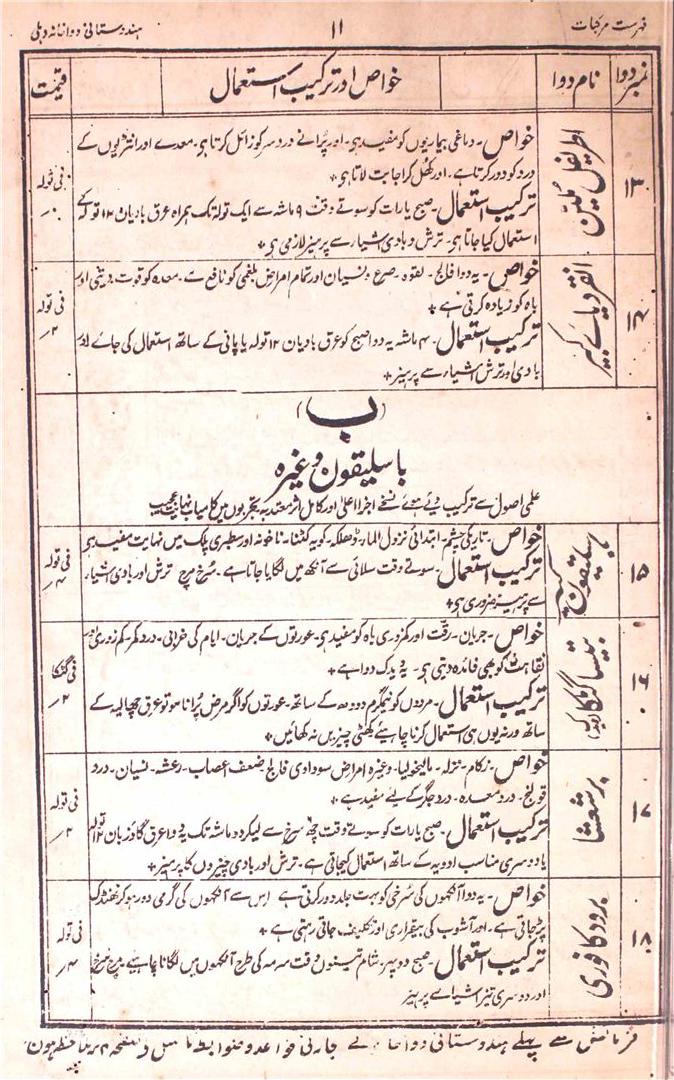 فہرست مرکبات ۱۱ ہندوستانی دواخانہ دہلی
نمبر دوا نام دوا خواص اور ترکیب استعمال قیمت
۱۳ اطریفل ملین
خواص۔ دماغی بیماریوں کو مفید ہی۔ اور پُرانے درد سر کو زائل کرتا ہی۔ معدے اور انتڑیوں کے
درد کو دور کرتا ہے۔ اور کھُل کر اجابت لاتا ہی ٭
ترکیب استعمال۔ صبح یا رات کو سوتے وقت ۹ ماشہ سے ایک تولہ تک ہمراہ عرق بادیان ۱۲ تولہ کے
استعمال کیا جاتا ہی۔ ترش و بادی اشیار سے پرہیز لازمی ہی ٭
فی تولہ
۱۴ انقردیائے کبیر
خواص۔ یہ دوا فالج۔ لقوہ۔ صرع۔ نسیان اور تمام امراض بلغمی کو نافع ہے۔ معدہ کو قوت دیتی اور
باہ کو زیادہ کرتی ہے ٭
ترکیب استعمال۔ ۴ ماشہ یہ دوا صبح کو عرق بادیان ۱۲ تولہ یا پانی کے ساتھ استعمال کی جائے اور
بادی اور ترش اشیاء سے پرہیز ٭
فی تولہ ۲؍
(ب)
باسلیقون وغیرہ
علمی اصول سے ترکیب دیئے ہوئے نسخے اجزا اعلیٰ اور کامل اثر معتد بہ تجربوں میں کامیاب نہایت عجیب
۱۵ باسلیقون کبیر
خواص۔ تاریکی چشم۔ ابتدائی نزول المار۔ ڈھلکہ۔ کویہ کٹنا۔ ناخونہ اور سطبری پلک میں نہایت مفید ہی
ترکیب استعمال۔ سوتے وقت سلائی سے آنکھ میں لگایا جاتا ہے۔ سُرخ مرچ ترش اور بادی اشیار
سے پرہیز ضروری ہی ٭
فی تولہ ۴؍
۱۶ بتیسا گٹکا (ویدک)
خواص۔ جریان۔ رقّت اور کمزوری باہ کو مفید ہی۔ عورتوں کے جریان۔ ایام کی خرابی۔ درد کمر۔ کم زوری اور
نقاہت کو بھی فائدہ دیتی ہی۔ یہ ویدک دوا ہے ٭
ترکیب استعمال۔ مردوں کو نیمگرم دودھ کے ساتھ۔ عورتوں کو اگر مرض پُرانا ہو تو عرق چھالیہ کے
ساتھ ورنہ یوں ہی استعمال کرنا چاہیئے کھٹی چیزیں نہ کھائیں ٭
فی گٹکا ۲؍
۱۷ برشعشا
خواص۔ زکام۔ نزلہ۔ مالیخولیا۔ وغیرہ امراض سوداوی فالج۔ ضعف اعصاب۔ رعشہ۔ نسیان۔ درد
قولنج۔ درد معدہ۔ درد جگر کے لیے مفید ہے ٭
ترکیب استعمال۔ صبح یا رات کو سوتے وقت چھ سرخ سے لیکر دو ماشہ تک یہ دوا عرق گاؤ زبان ۱۲ تولہ
یا دوسری مناسب ادویہ کے ساتھ استعمال کیجاتی ہے۔ ترش اور بادی چیزوں کا پرہیز ٭
فی تولہ ۲؍
۱۸ برود کافوری
خواص۔ یہ دوا آنکھوں کی سُرخی کو بہت جلد دور کرتی ہے اس سے آنکھوں کی گرمی دور ہو کر ٹھنڈک
پڑ جاتی ہے۔ اور آشوب کی بیقراری اور تکلیف جاتی رہتی ہے ٭
ترکیب استعمال۔ صبح دوپہر شام تینوں وقت سرمہ کی طرح آنکھوں میں لگانا چاہیے۔ مرچ سرخ
اور دوسری تیز اشیا سے پرہیز
فی تولہ ۴؍
فرمائش سے پہلے ہندوستانی دواخانہ کے قواعد و ضوابط صفحہ ۴ پر ملاحظہ ہوں